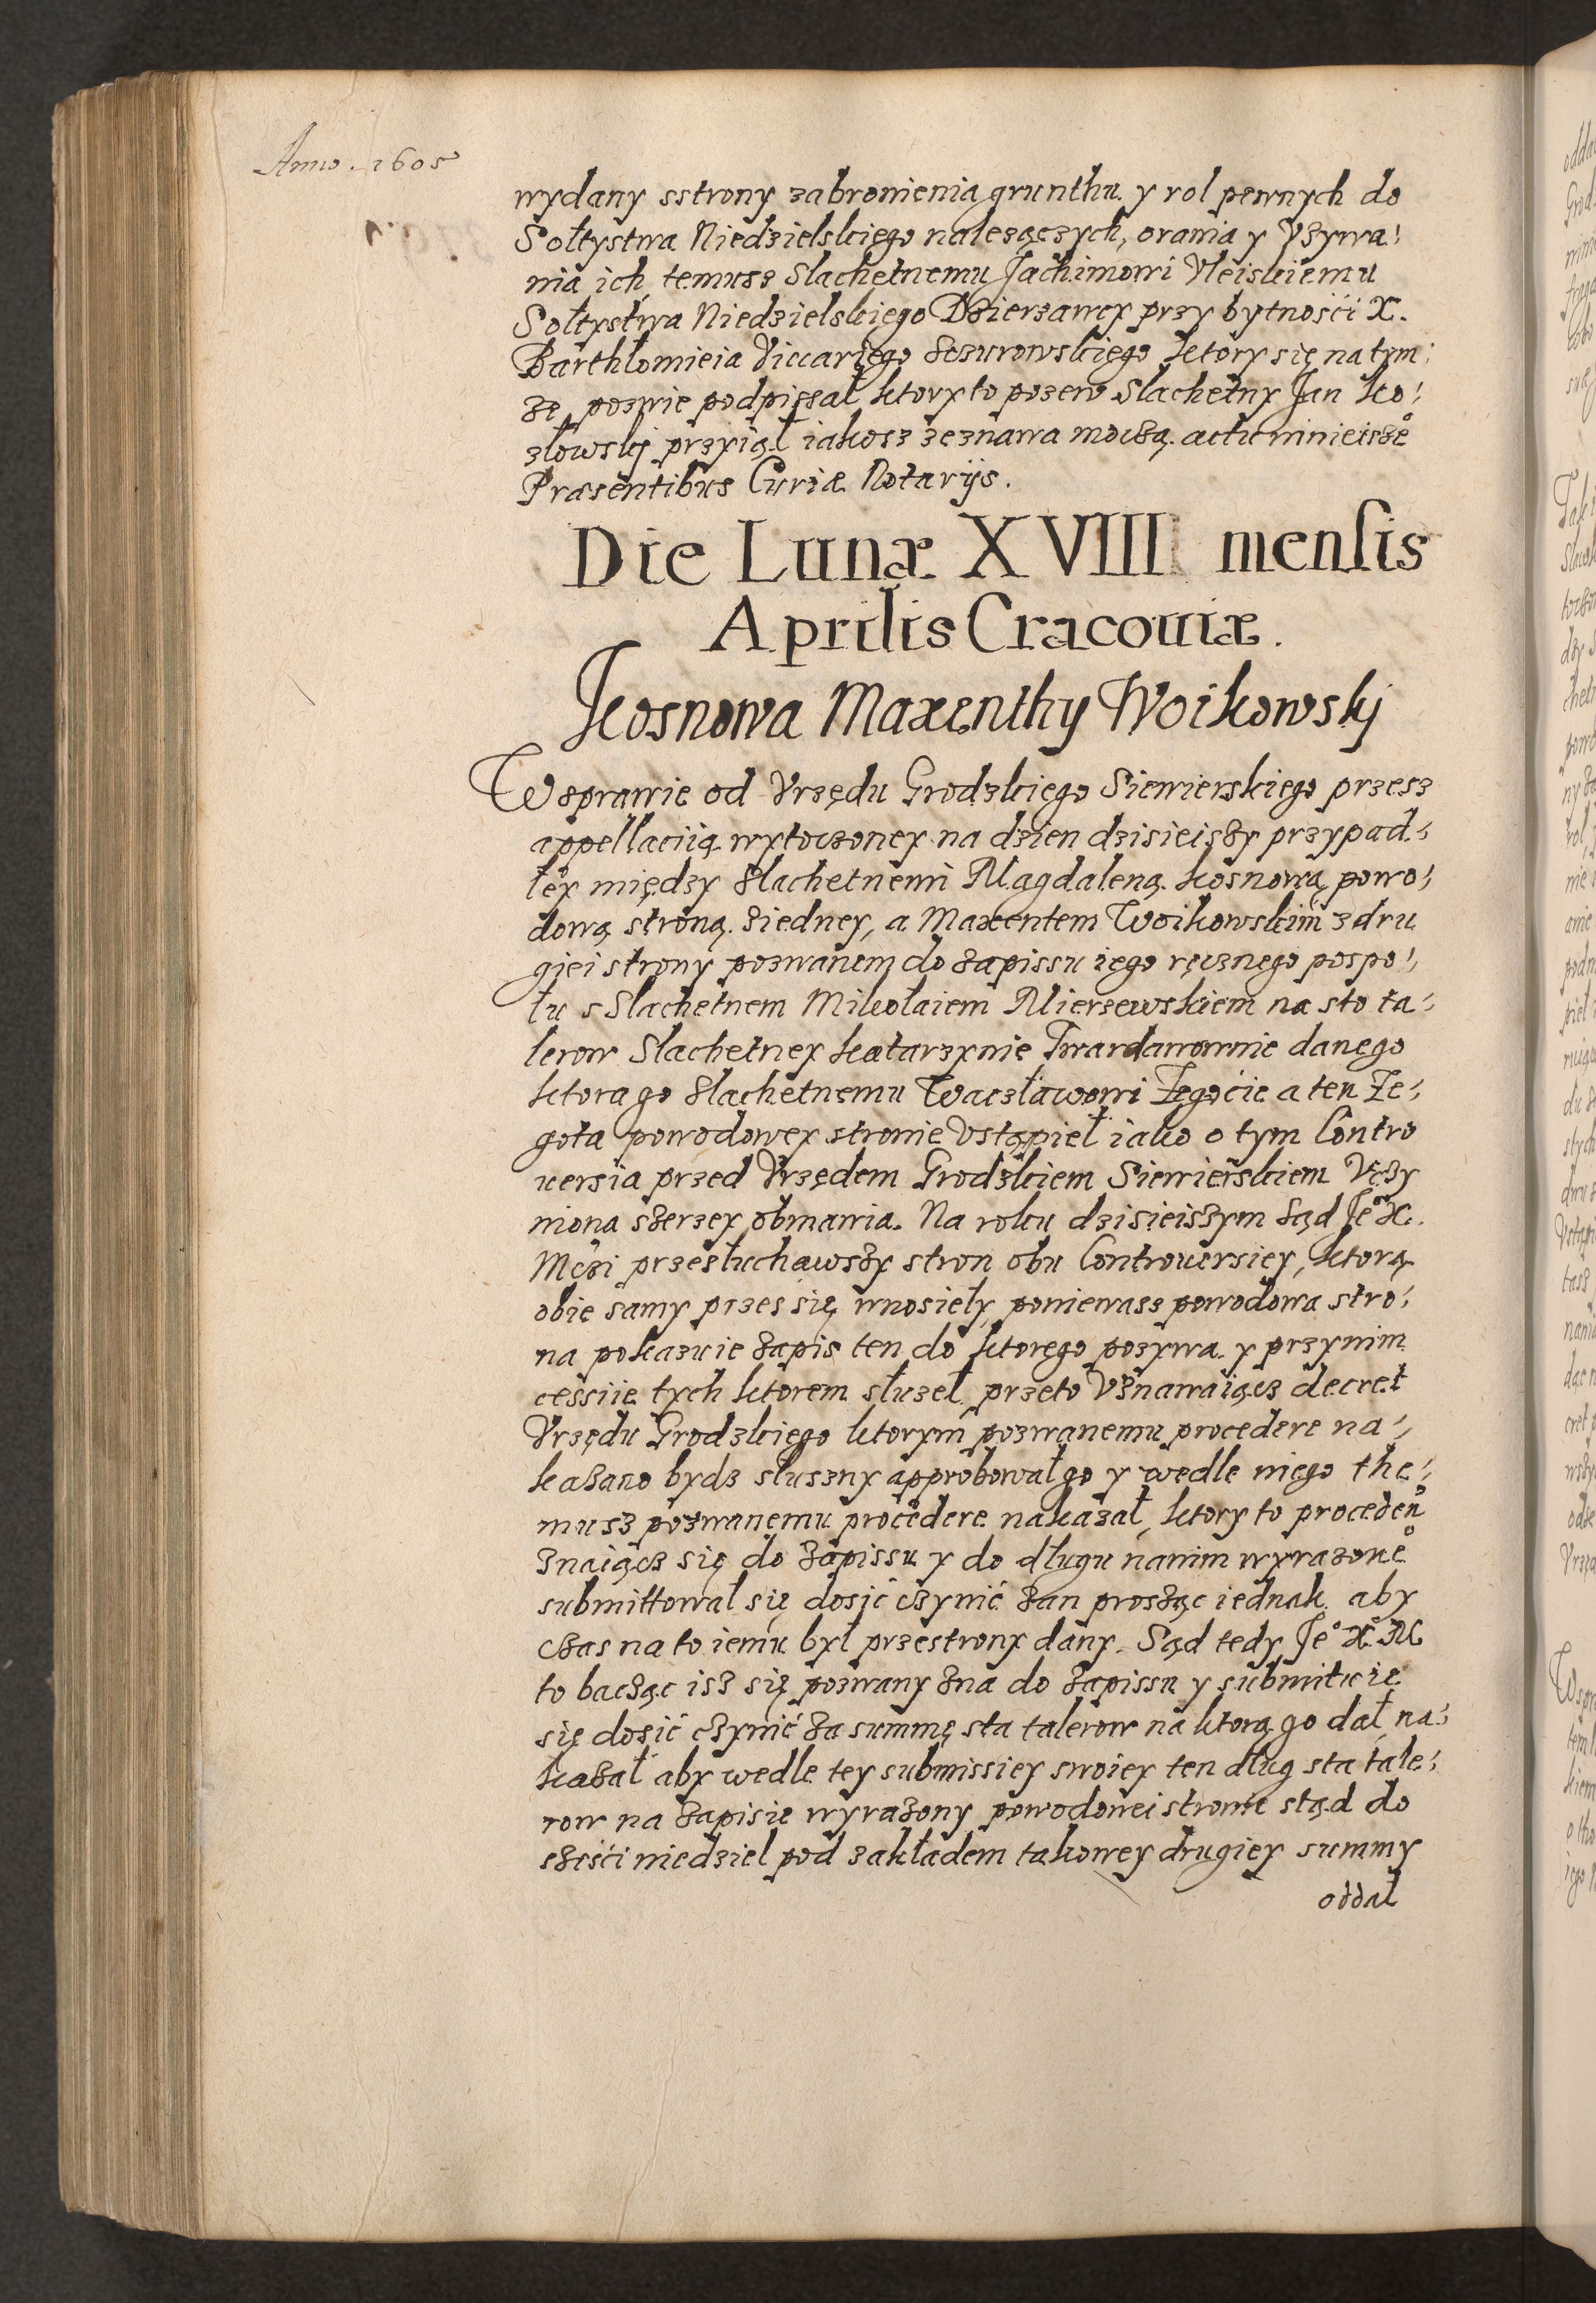 Anno. 1605
wydany sstrony zabronienia grunthu y rol pewnych do
Sołtystwa Niedzielskiego należączych, orania y Używa:
nia ich temusz Slachetnemu Jachimowi Uleiskiemu
Sołtystwa Niedzielskiego Dzierzawcy przy bytnosći X.
Barthłomieia Viccariego Sczurowskiego ktory się na tym:
że pozwie podpissał ktory to pozew Slachetny Jan Ko:
złowskj przyiął iakosz zeznawa moczą actu ninieisze°
Præsentibus Curiæ Notarijs.
Die Lunæ XVIII mensis
Aprilis Cracouiæ.
Kosnowa Maxenthy Woikowskj
W sprawie od Urzędu Grodzkiego Siewierskiego przesz
appellaciią wytoczoney na dzien dzisieiszy przypad:
łey między Slachetnemi Magdaleną Kosnową powo:
dową stroną ziedney, a Maxentem Woikowskim z dru
giei strony pozwanem do zapissu iego ręcznego pospo:
łu s Slachetnem Mikołaiem Mierzewskiem na sto ta:
lerow Slachetney Katarzynie Twardawownie danego
ktora go Slachetnemu Wacżławowi Żegoćie a ten Że:
gota powodowey stronie Ustąpieł iako o tym Contro
uersia przed Urzędem Grodzkiem Siewierskiem Uczy
niona szerzey obmawia. Na roku dzisieiszym Sąd Je° X.
Mczi przesłuchawszy stron obu Controuersiey, ktorą
obie samy przes się wnosieły, poniewasz powodowa stro:
na pokazuie zapis ten do ktorego pozywa y przynim
cessiie tych ktorem służeł przeto Uznawaiącz decret
Urzędu Grodzkiego ktorym pozwanemu procedere na:
kazano bydz słuszny approbował go y wedle niego the:
musz pozwanemu procedere nakazał, ktory to proceden°
Znaiącz się do zapissu y do długu nanim wyrazone°
submittował się dosić czynić zan proszącz iednak aby
czas na to iemu był przestrony dany. Sąd tedy Je° X. M
to bacząc isz się pozwany zna do zapissu y submituie
się dosić czynić za summę sta talerow na ktorą go dał, na:
kazał aby wedle tey submissiey swoiey ten dług sta tale:
row na zapisie wyrażony powodowei stronie stąd do
szesći niedziel pod zakładem takowey drugiey summy
oddał